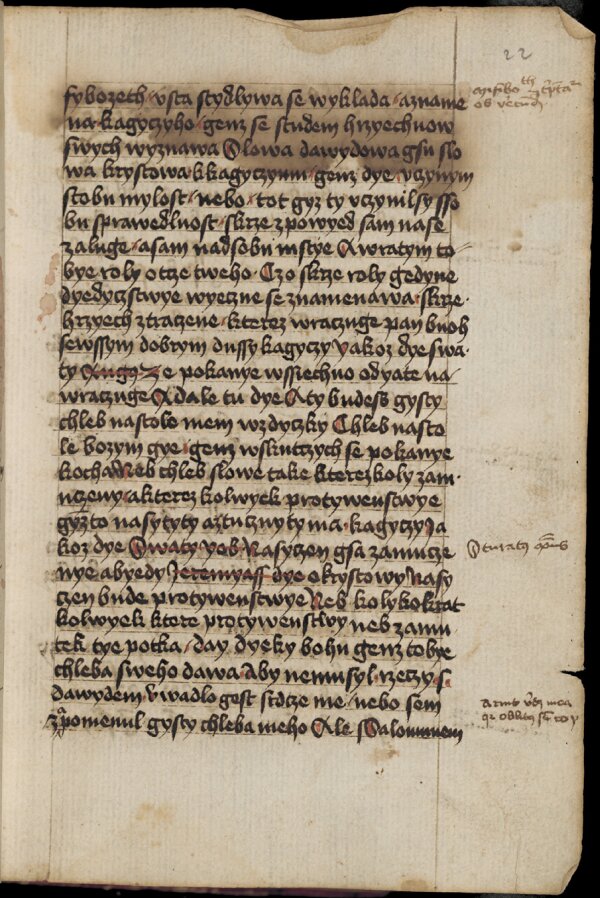 22
fybozeth vsta stydlywa se wyklada azname
na kagyczyho genz se studem hrzyechuow
swych wyznawa Slowa dawydowa gsu slo
wa krystowa kkagyczymu genz dye vczynym
stobu mylost nebo tot gyz ty vczynilsy sso
bu sprawedlnost skrze zpowyed sam na se
zaluge asam nad sobu mstye A wratym to
bye roly otcze tweho Czo skrze roly gedyne
dyedyczstwye wyeczne se znamenawa skrze
hrzyech ztraczene kterez wraczuge pan buoh
sewssym dobrym dussy kagyczy yakoz dye swa
ty Augus Ze pokanye wssiechno odyate na
wraczuge A dale tu dye A ty budess gysty
chleb nastole mem wzdyczky Chleb nasto
le bozym gye genz wskutczych se pokanye
kocha Neb chleb slowe take kterezkoly zam
uczeny akterezkolwyek protywenstwye
gyzto nasytyty a ztucznyty ma kagyczy Ja
koz dye Swaty yob Nasyczen gsa zamucze
nye abyedy Jeremyass dye okrystowy Nasy
czen bude protywenstwye Neb kolykokrat
kolwyek ktere protywenstwy neb zamu
tek tye potka day dyeky bohu genz tobye
chleba sweho dawa Aby nemusyl rzeczy s
dawydem Vwadlo gest srdcze me nebo sem
zapomenul gysty chleba meho Ale Ssalomunem